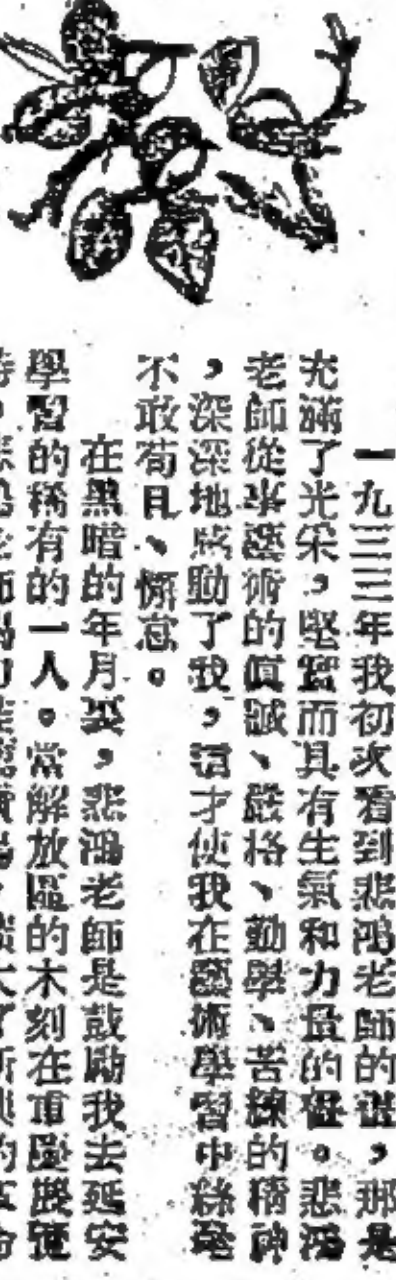 一九三三年我初次看到悲鴻老師的畫，那是
充滿了光采，堅實而具有生氣和力量的畫。悲鴻
老師從事藝術的眞誠、嚴格、勤學、苦練的精神
，深深地感動了我，這才使我在藝術學習中絲毫
不敢苟且、懈怠。
在黑暗的年月裏，悲鴻老師是鼓勵我去延安
學習的稀有的一人。當解放區的木刻在重慶展覽